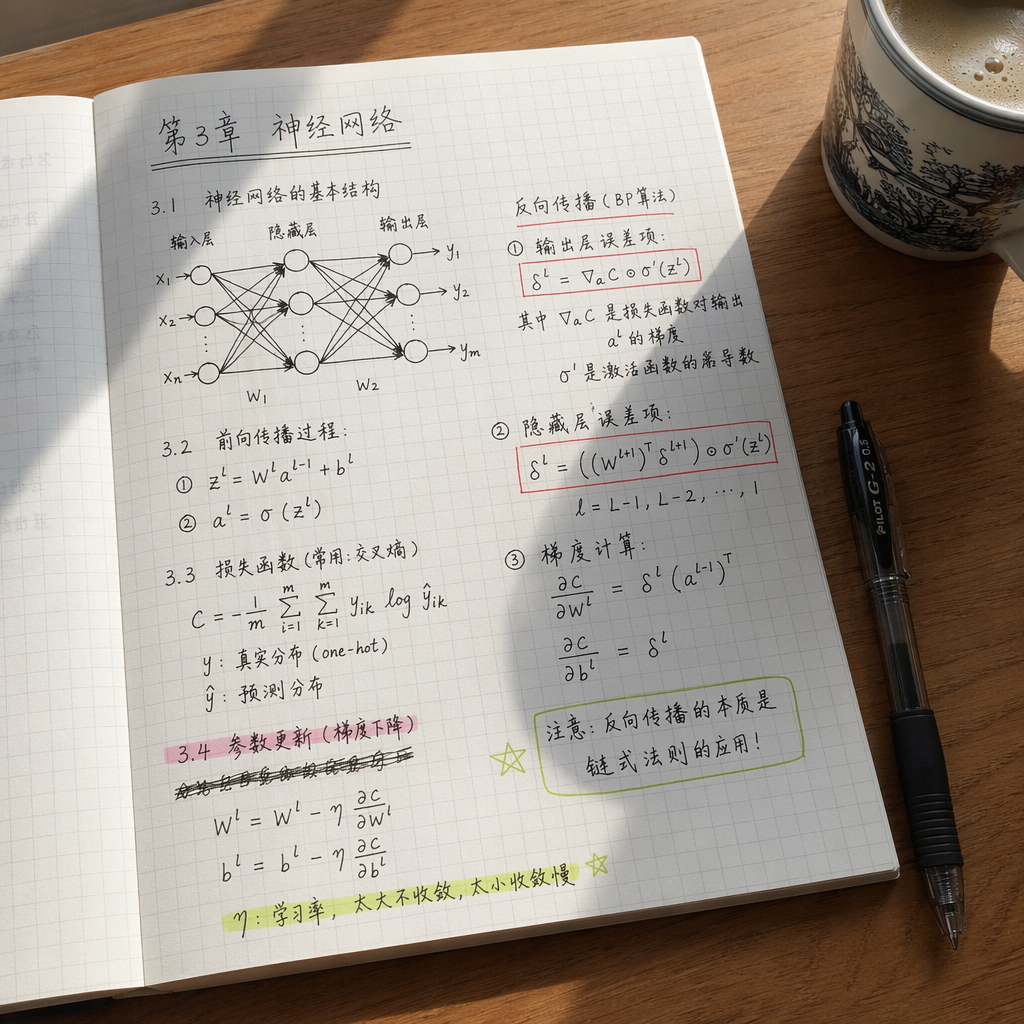 第3章 神经网络
3.1 神经网络的基本结构
输入层 隐藏层 输出层
x₁ y₁
x₂ y₂
⋮ ⋮ ⋮
xₙ yₘ
W₁ W₂
3.2 前向传播过程:
① zˡ = Wˡ aˡ⁻¹ + bˡ
② aˡ = σ (zˡ)
3.3 损失函数 (常用: 交叉熵)
C = -1/m ∑_{i=1}^{m} ∑_{k=1}^{m} y_{ik} log ŷ_{ik}
y: 真实分布 (one-hot)
ŷ: 预测分布
3.4 参数更新 (梯度下降)
Wˡ = Wˡ - η ∂C/∂Wˡ
bˡ = bˡ - η ∂C/∂bˡ
η: 学习率, 太大不收敛, 太小收敛慢
反向传播 (BP算法)
① 输出层误差项:
δᴸ = ∇aC ⊙ σ'(zᴸ)
其中 ∇aC 是损失函数对输出
aᴸ 的梯度
σ' 是激活函数的导数
② 隐藏层误差项:
δˡ = ((Wˡ⁺¹)ᵀ δˡ⁺¹) ⊙ σ'(zˡ)
l = L-1, L-2, ⋯, 1
③ 梯度计算:
∂C/∂Wˡ = δˡ (aˡ⁻¹)ᵀ
∂C/∂bˡ = δˡ
注意: 反向传播的本质是
链式法则的应用!
PILOT G-2 0.5